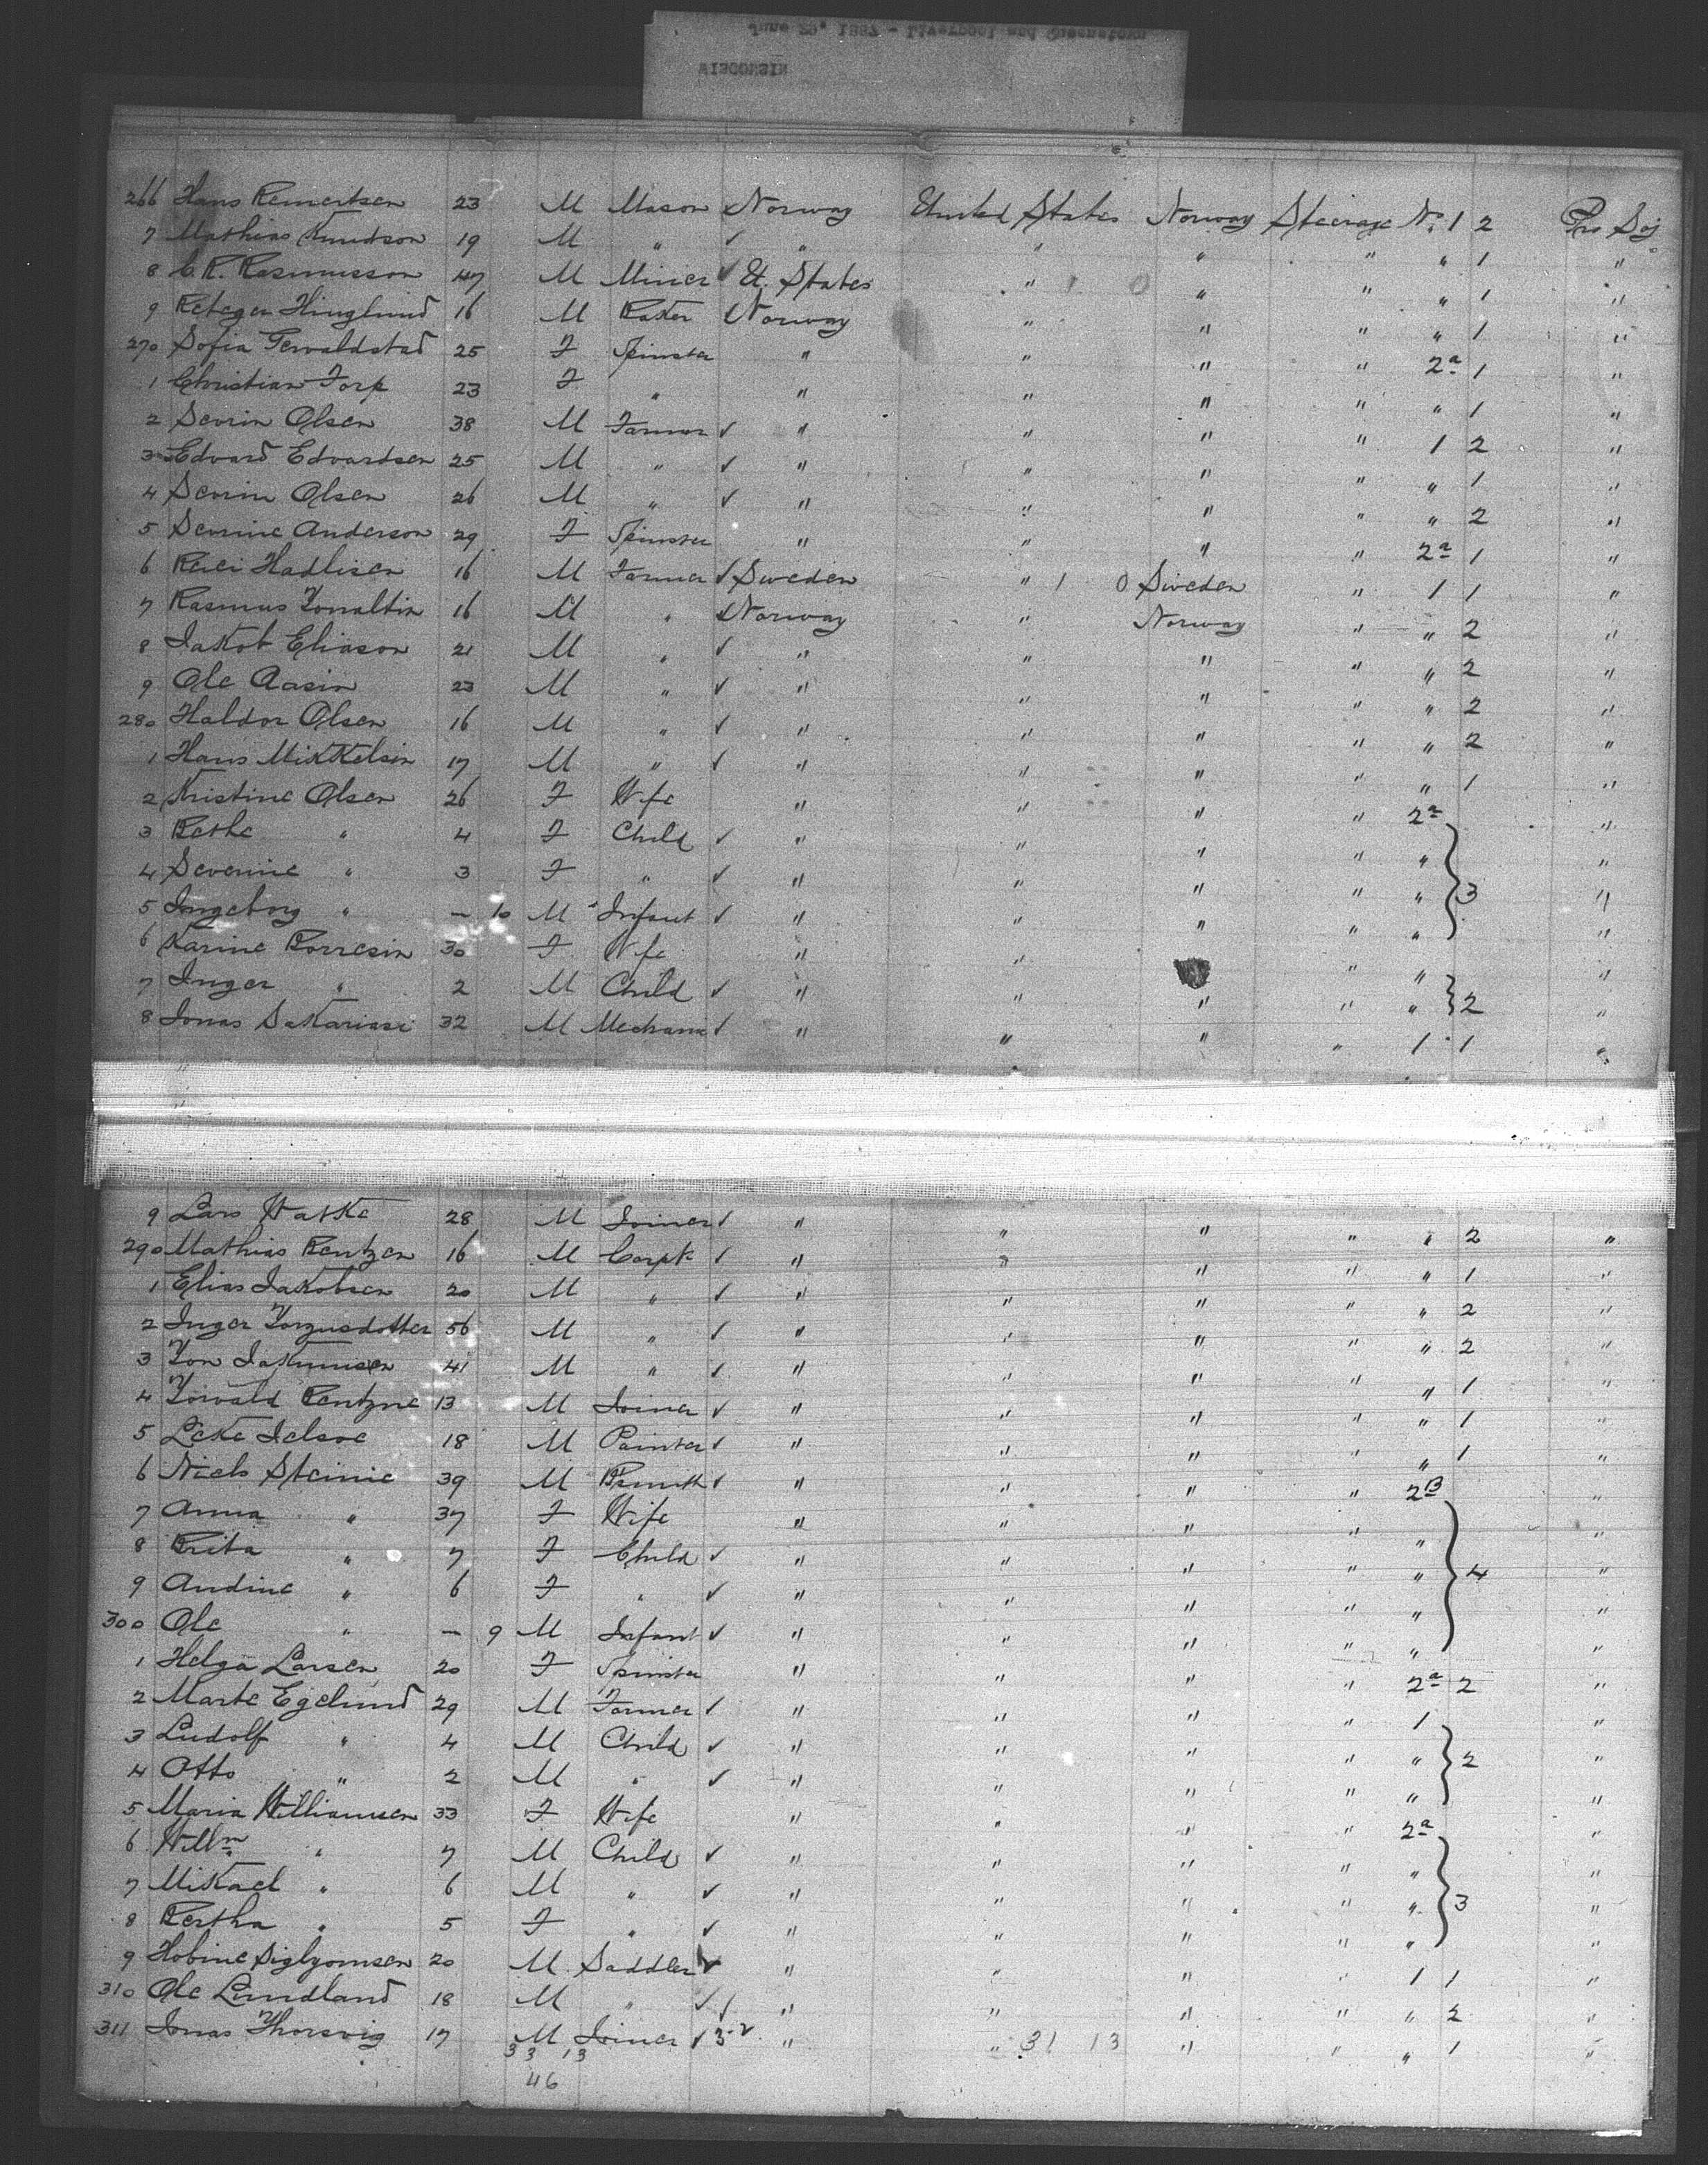 June 29" 1887 - Liverpool and Queenstown
WISCONSIN
266 Hans Remertsen 23 M Mason ✓ Norway United States Norway Steerage No. 1 2 Pro Soj
7 Mathias Knudson 19 M " ✓ " " " " " 1 "
8 C. R. Rasmusson 47 M Miner ✓ U. States " 1 0 " " " 1 "
9 Reteger Hinglund 16 M Baker ✓ Norway " " " " 1 "
270 Sofia 25 F Spinster " " " " 2a 1 "
1 Christian Torp 23 F " " " " " " 1 "
2 Sevrin Olsen 38 M Farmer ✓ " " " " 1 2 "
3 Edvard Edvardsen 25 M " ✓ " " " " " 1 "
4 Sevrin Olsen 26 M " ✓ " " " " " 2 "
5 Sevrine Anderson 29 F Spinster " " " " 2a 1 "
6 Hadlisen 16 M Farmer ✓ Sweden " 1 0 Sweden " 1 1 "
7 Rasmus 16 M " ✓ Norway " Norway " " 2 "
8 Jakob Eliason 21 M " ✓ " " " " " 2 "
9 Ole Aasin 23 M " ✓ " " " " " 2 "
280 Haldor Olsen 16 M " ✓ " " " " " 2 "
1 Hans Mikkelsin 17 M " ✓ " " " " " 1 "
2 Kristine Olsen 26 F Wife " " " " 2a "
3 Bethe " 4 F Child ✓ " " " " " "
4 Severine " 3 F " ✓ " " " " " 3 "
5 Ingeborg " — 10 M Infant ✓ " " " " " "
6 Karine Borresin 30 F Wife " " " " "
7 Inger " 2 M Child ✓ " " " " " 2 "
8 Jonas Sakariasi 32 M Mechanic ✓ " " " " 1 1 "
9 Lars Watke 28 M Joiner ✓ " " " " " 2 "
290 Mathias Rentzen 16 M Carptr ✓ " " " " " 1 "
1 Elias Jakobsen 20 M " ✓ " " " " " 2 "
2 Inger 56 M " ✓ " " " " " 2 "
3 41 M " ✓ " " " " " 1 "
4 Rentzne 13 M Joiner ✓ " " " " " 1 "
5 18 M Painter ✓ " " " " " 1 "
6 Niels Steinie 39 M Bsmith ✓ " " " " 2B "
7 Anna " 37 F Wife " " " " " "
8 Brita " 7 F Child ✓ " " " " " 4 "
9 Andine " 6 F " ✓ " " " " " "
300 Ole " — 9 M Infant ✓ " " " " " "
1 Helga Larsen 20 F Spinster " " " " 2a 2 "
2 Marte Egelund 29 M Farmer ✓ " " " " 1 "
3 Ludolf " 4 M Child ✓ " " " " " 2 "
4 Otto " 2 M " ✓ " " " " " "
5 Maria Williamsen 33 F Wife " " " " 2a "
6 Willm " 7 M Child ✓ " " " " " "
7 Mikael " 6 M " ✓ " " " " " 3 "
8 Bertha " 5 F " ✓ " " " " " "
9 Hobine 20 M Saddler ✓ " " " " 1 1 "
310 Ole Lundland 18 M " ✓ " " " " " 2 "
311 Jonas Thorsvig 17 M Joiner ✓ 32 " " 31 13 " " " 1 "
33 13
46